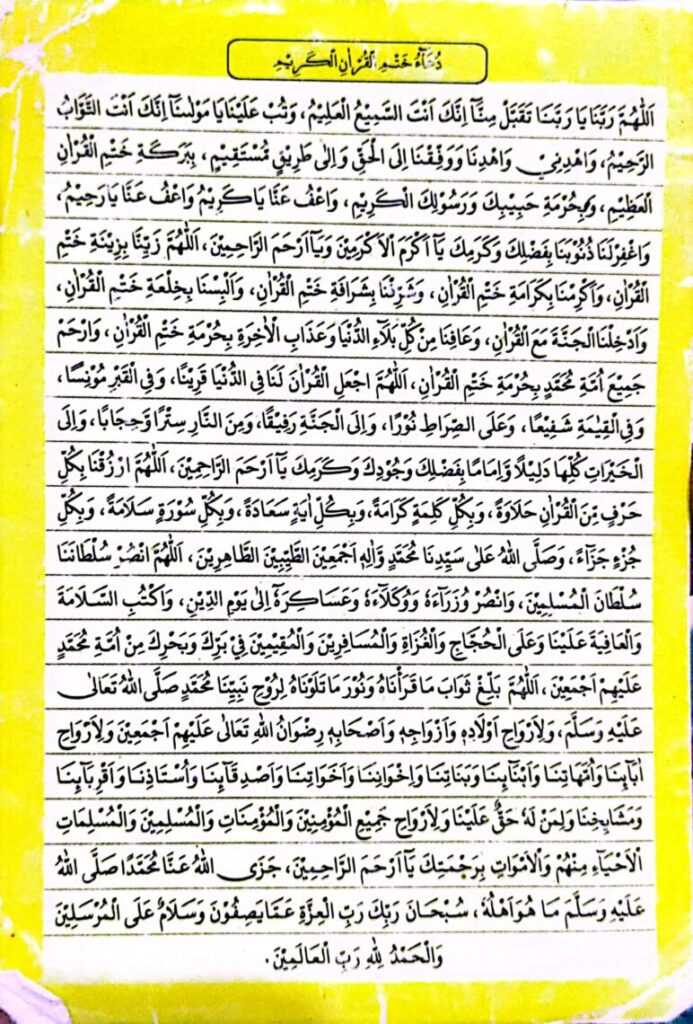 دُعَآءُ خَتْمِ الْقُرْاٰنِ الْكَرِيْمِ
اَللّٰهُمَّ رَبَّنَا يَا رَبَّنَا تَقَبَّلْ مِنَّآ اِنَّكَ اَنْتَ السَّمِيْعُ الْعَلِيْمُ، وَتُبْ عَلَيْنَا يَا مَوْلٰىنَآ اِنَّكَ اَنْتَ التَّوَّابُ
الرَّحِيْمُ، وَاهْدِنِيْ وَاهْدِنَا وَوَفِّقْنَا اِلَى الْحَقِّ وَاِلٰى طَرِيْقٍ مُّسْتَقِيْمٍ، بِبَرَكَةِ خَتْمِ الْقُرْاٰنِ
الْعَظِيْمِ، وَبِحُرْمَةِ حَبِيْبِكَ وَرَسُوْلِكَ الْكَرِيْمِ، وَاعْفُ عَنَّا يَا كَرِيْمُ وَاعْفُ عَنَّا يَا رَحِيْمُ،
وَاغْفِرْلَنَا ذُنُوْبَنَا بِفَضْلِكَ وَكَرَمِكَ يَآ اَكْرَمَ الْاَكْرَمِيْنَ وَيَآ اَرْحَمَ الرَّاحِمِيْنَ، اَللّٰهُمَّ زَيِّنَّا بِزِيْنَةِ خَتْمِ
الْقُرْاٰنِ، وَاَكْرِمْنَا بِكَرَامَةِ خَتْمِ الْقُرْاٰنِ، وَشَرِّفْنَا بِشَرَافَةِ خَتْمِ الْقُرْاٰنِ، وَاَلْبِسْنَا بِخِلْعَةِ خَتْمِ الْقُرْاٰنِ،
وَاَدْخِلْنَا الْجَنَّةَ مَعَ الْقُرْاٰنِ، وَعَافِنَا مِنْ كُلِّ بَلَآءِ الدُّنْيَا وَعَذَابِ الْاٰخِرَةِ بِحُرْمَةِ خَتْمِ الْقُرْاٰنِ، وَارْحَمْ
جَمِيْعَ اُمَّةِ مُحَمَّدٍ بِحُرْمَةِ خَتْمِ الْقُرْاٰنِ، اَللّٰهُمَّ اجْعَلِ الْقُرْاٰنَ لَنَا فِى الدُّنْيَا قَرِيْنًا، وَفِى الْقَبْرِ مُوْنِسًا،
وَفِى الْقِيٰمَةِ شَفِيْعًا، وَعَلَى الصِّرَاطِ نُوْرًا، وَاِلَى الْجَنَّةِ رَفِيْقًا، وَمِنَ النَّارِ سِتْرًا وَّحِجَابًا، وَاِلَى
الْخَيْرَاتِ كُلِّهَا دَلِيْلًا وَّاِمَامًا بِفَضْلِكَ وَجُوْدِكَ وَكَرَمِكَ يَآ اَرْحَمَ الرَّاحِمِيْنَ، اَللّٰهُمَّ ارْزُقْنَا بِكُلِّ
حَرْفٍ مِّنَ الْقُرْاٰنِ حَلَاوَةً، وَبِكُلِّ كَلِمَةٍ كَرَامَةً، وَبِكُلِّ اٰيَةٍ سَعَادَةً، وَبِكُلِّ سُوْرَةٍ سَلَامَةً، وَبِكُلِّ
جُزْءٍ جَزَآءً، وَصَلَّى اللّٰهُ عَلٰى سَيِّدِنَا مُحَمَّدٍ وَّاٰلِهٖ اَجْمَعِيْنَ الطَّيِّبِيْنَ الطَّاهِرِيْنَ، اَللّٰهُمَّ انْصُرْ سُلْطَانَنَا
سُلْطَانَ الْمُسْلِمِيْنَ، وَانْصُرْ وُزَرَآءَهٗ وَوُكَلَآءَهٗ وَعَسَاكِرَهٗٓ اِلٰى يَوْمِ الدِّيْنِ، وَاكْتُبِ السَّلَامَةَ
وَالْعَافِيَةَ عَلَيْنَا وَعَلَى الْحُجَّاجِ وَالْغُزَاةِ وَالْمُسَافِرِيْنَ وَالْمُقِيْمِيْنَ فِيْ بَرِّكَ وَبَحْرِكَ مِنْ اُمَّةِ مُحَمَّدٍ
عَلَيْهِمْ اَجْمَعِيْنَ، اَللّٰهُمَّ بَلِّغْ ثَوَابَ مَا قَرَأْنَاهُ وَنُوْرَ مَا تَلَوْنَاهُ لِرُوْحِ نَبِيِّنَا مُحَمَّدٍ صَلَّى اللّٰهُ تَعَالٰى
عَلَيْهِ وَسَلَّمَ، وَلِاَرْوَاحِ اَوْلَادِهٖ وَاَزْوَاجِهٖ وَاَصْحَابِهٖ رِضْوَانُ اللّٰهِ تَعَالٰى عَلَيْهِمْ اَجْمَعِيْنَ وَلِاَرْوَاحِ
اٰبَآئِنَا وَاُمَّهَاتِنَا وَاَبْنَآئِنَا وَبَنَاتِنَا وَاِخْوَانِنَا وَاَخَوَاتِنَا وَاَصْدِقَآئِنَا وَاُسْتَاذِنَا وَاَقْرِبَآئِنَا
وَمَشَايِخِنَا وَلِمَنْ لَهٗ حَقٌّ عَلَيْنَا وَلِاَرْوَاحِ جَمِيْعِ الْمُؤْمِنِيْنَ وَالْمُؤْمِنَاتِ وَالْمُسْلِمِيْنَ وَالْمُسْلِمَاتِ
الْاَحْيَاءِ مِنْهُمْ وَالْاَمْوَاتِ بِرَحْمَتِكَ يَآ اَرْحَمَ الرَّاحِمِيْنَ، جَزَى اللّٰهُ عَنَّا مُحَمَّدًا صَلَّى اللّٰهُ
عَلَيْهِ وَسَلَّمَ مَا هُوَ اَهْلُهٗ، سُبْحَانَ رَبِّكَ رَبِّ الْعِزَّةِ عَمَّا يَصِفُوْنَ وَسَلَامٌ عَلَى الْمُرْسَلِيْنَ
وَالْحَمْدُ لِلّٰهِ رَبِّ الْعَالَمِيْنَ.